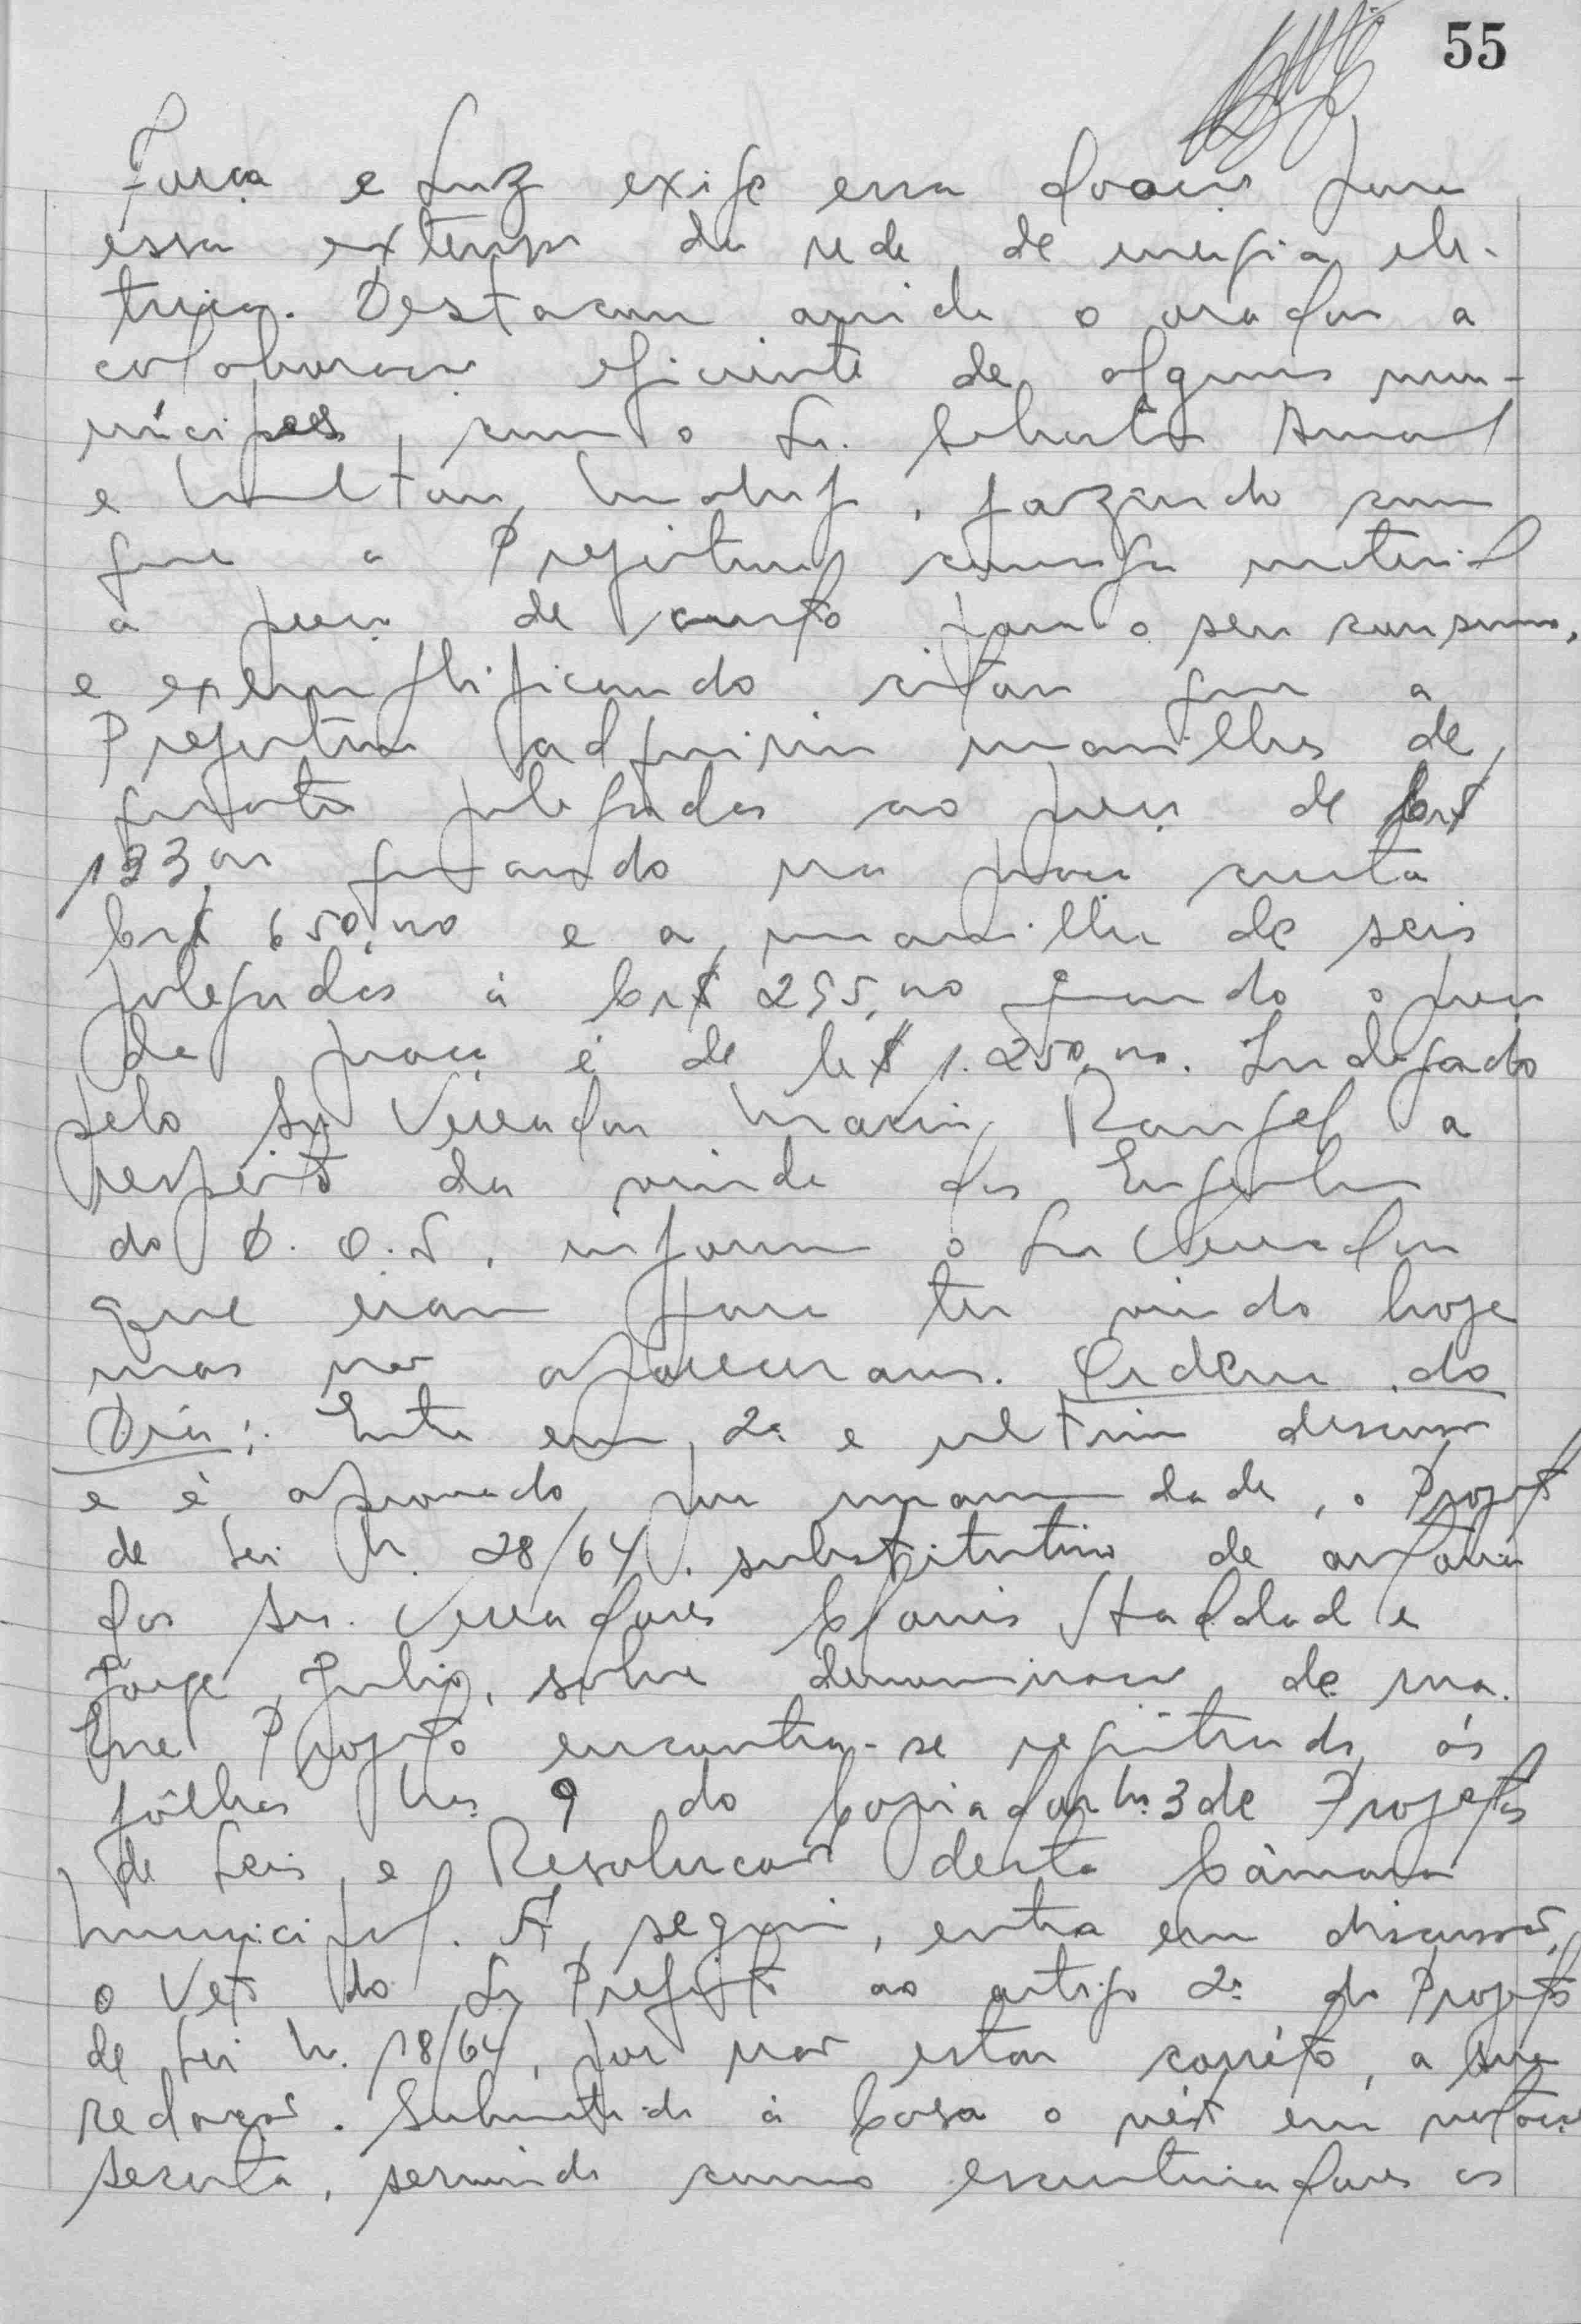 55
Força e Luz exige essa doação para
essa extensão da rede de energia elé-
trica. Destacou ainda o orador a
colaboração eficiente de alguns mu-
nícipes, como o Sr. Amaral
e , fazendo com
que a Prefeitura consiga material
a preço de custo para o seu consumo,
e exemplificando citou que a
Prefeitura adquiriu manilhas de
quatro polegadas ao preço de Cr$
133,00 quando na praça custa
Cr$ 650,00 e a manilha de seis
polegadas à Cr$ 255,00 quando o preço
da praça é de Cr$ 1.250,00. Indagado
pelo Sr. Vereador Mario Rangel a
respeito da vinda dos Engenheiros
do D.O.S., informa o Sr. Vereador
que eram para ter vindo hoje
mas não apareceram. Ordem do
Dia: Entra em 2ª e ultima discussão
e é aprovado por unanimidade, o Projeto
de Lei N. 28/64, substitutivo de autoria
dos Srs. Vereadores Clovis Haddad e
Jorge Julio, sobre denominação de rua.
Esse Projeto encontra-se registrado ás
fôlhas Nos 9 do Copiador Nº 3 de Projetos
de Leis e Resolução desta Câmara
Municipal. A seguir, entra em discussão,
o Veto do Sr. Prefeito ao artigo 2º do Projeto
de Lei N. 18/64, por não estar corréto, a sua
redação. Submetido à Casa o véto em votação
secreta, servindo como escrutinadores os